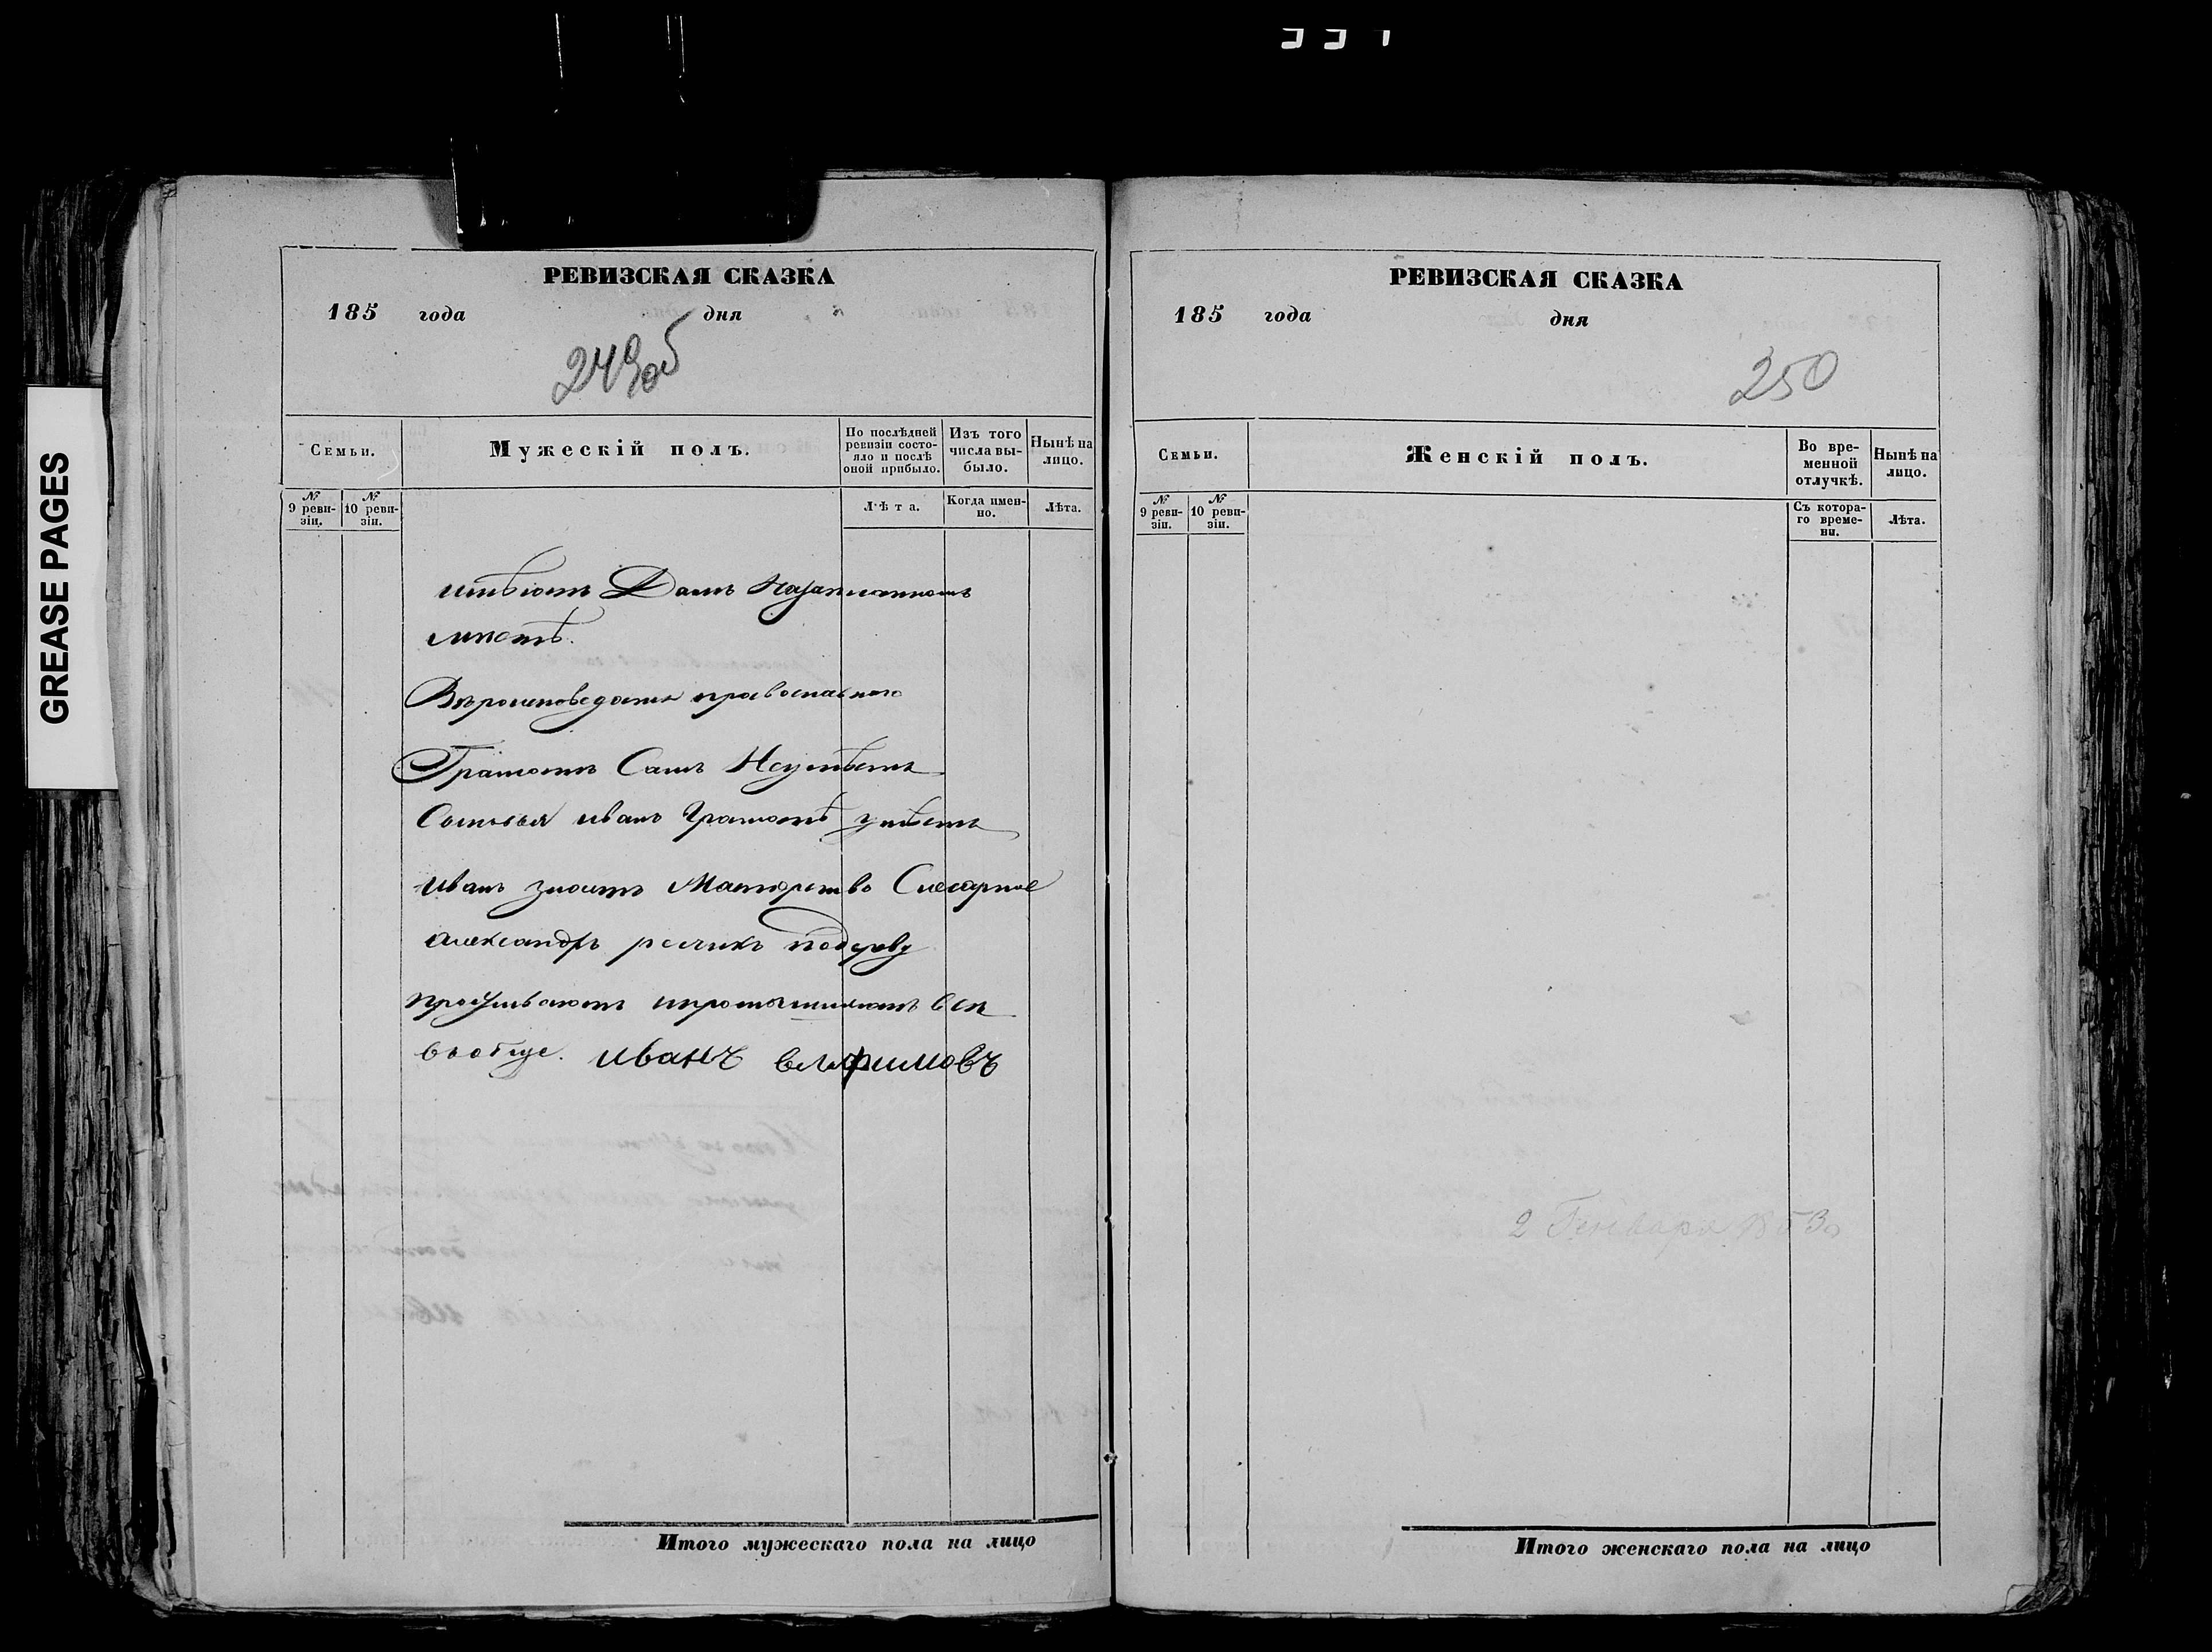 GREASE PAGES
РЕВИЗСКАЯ СКАЗКА
185 года дня
249об
Семьи.
Мужескій полъ.
По послѣдней ревизіи состояло и послѣ оной прибыло.
Изъ того числа выбыло.
Нынѣ на лицо.
№ 9 ревизіи.
№ 10 ревизіи.
Лѣта.
Когда именно.
Лѣта.
имѣютъ Домъ
мѣстѣ.
Вѣроисповеданія православного
Грамотѣ Самъ Неумѣетъ
Сыновья иванъ Грамотѣ умѣетъ
Иванъ знаетъ Мастерство Слесарное
Александръ рещикъ подереву
проживаютъ ипромышляютъ всѣ
вообще. иванъ
Итого мужескаго пола на лицо
РЕВИЗСКАЯ СКАЗКА
185 года дня
250
Семьи.
Женскій полъ.
Во временной отлучкѣ.
Нынѣ на лицо.
№ 9 ревизіи.
№ 10 ревизіи.
Съ котораго времени.
Лѣта.
2 Генваря 1853
Итого женскаго пола на лицо